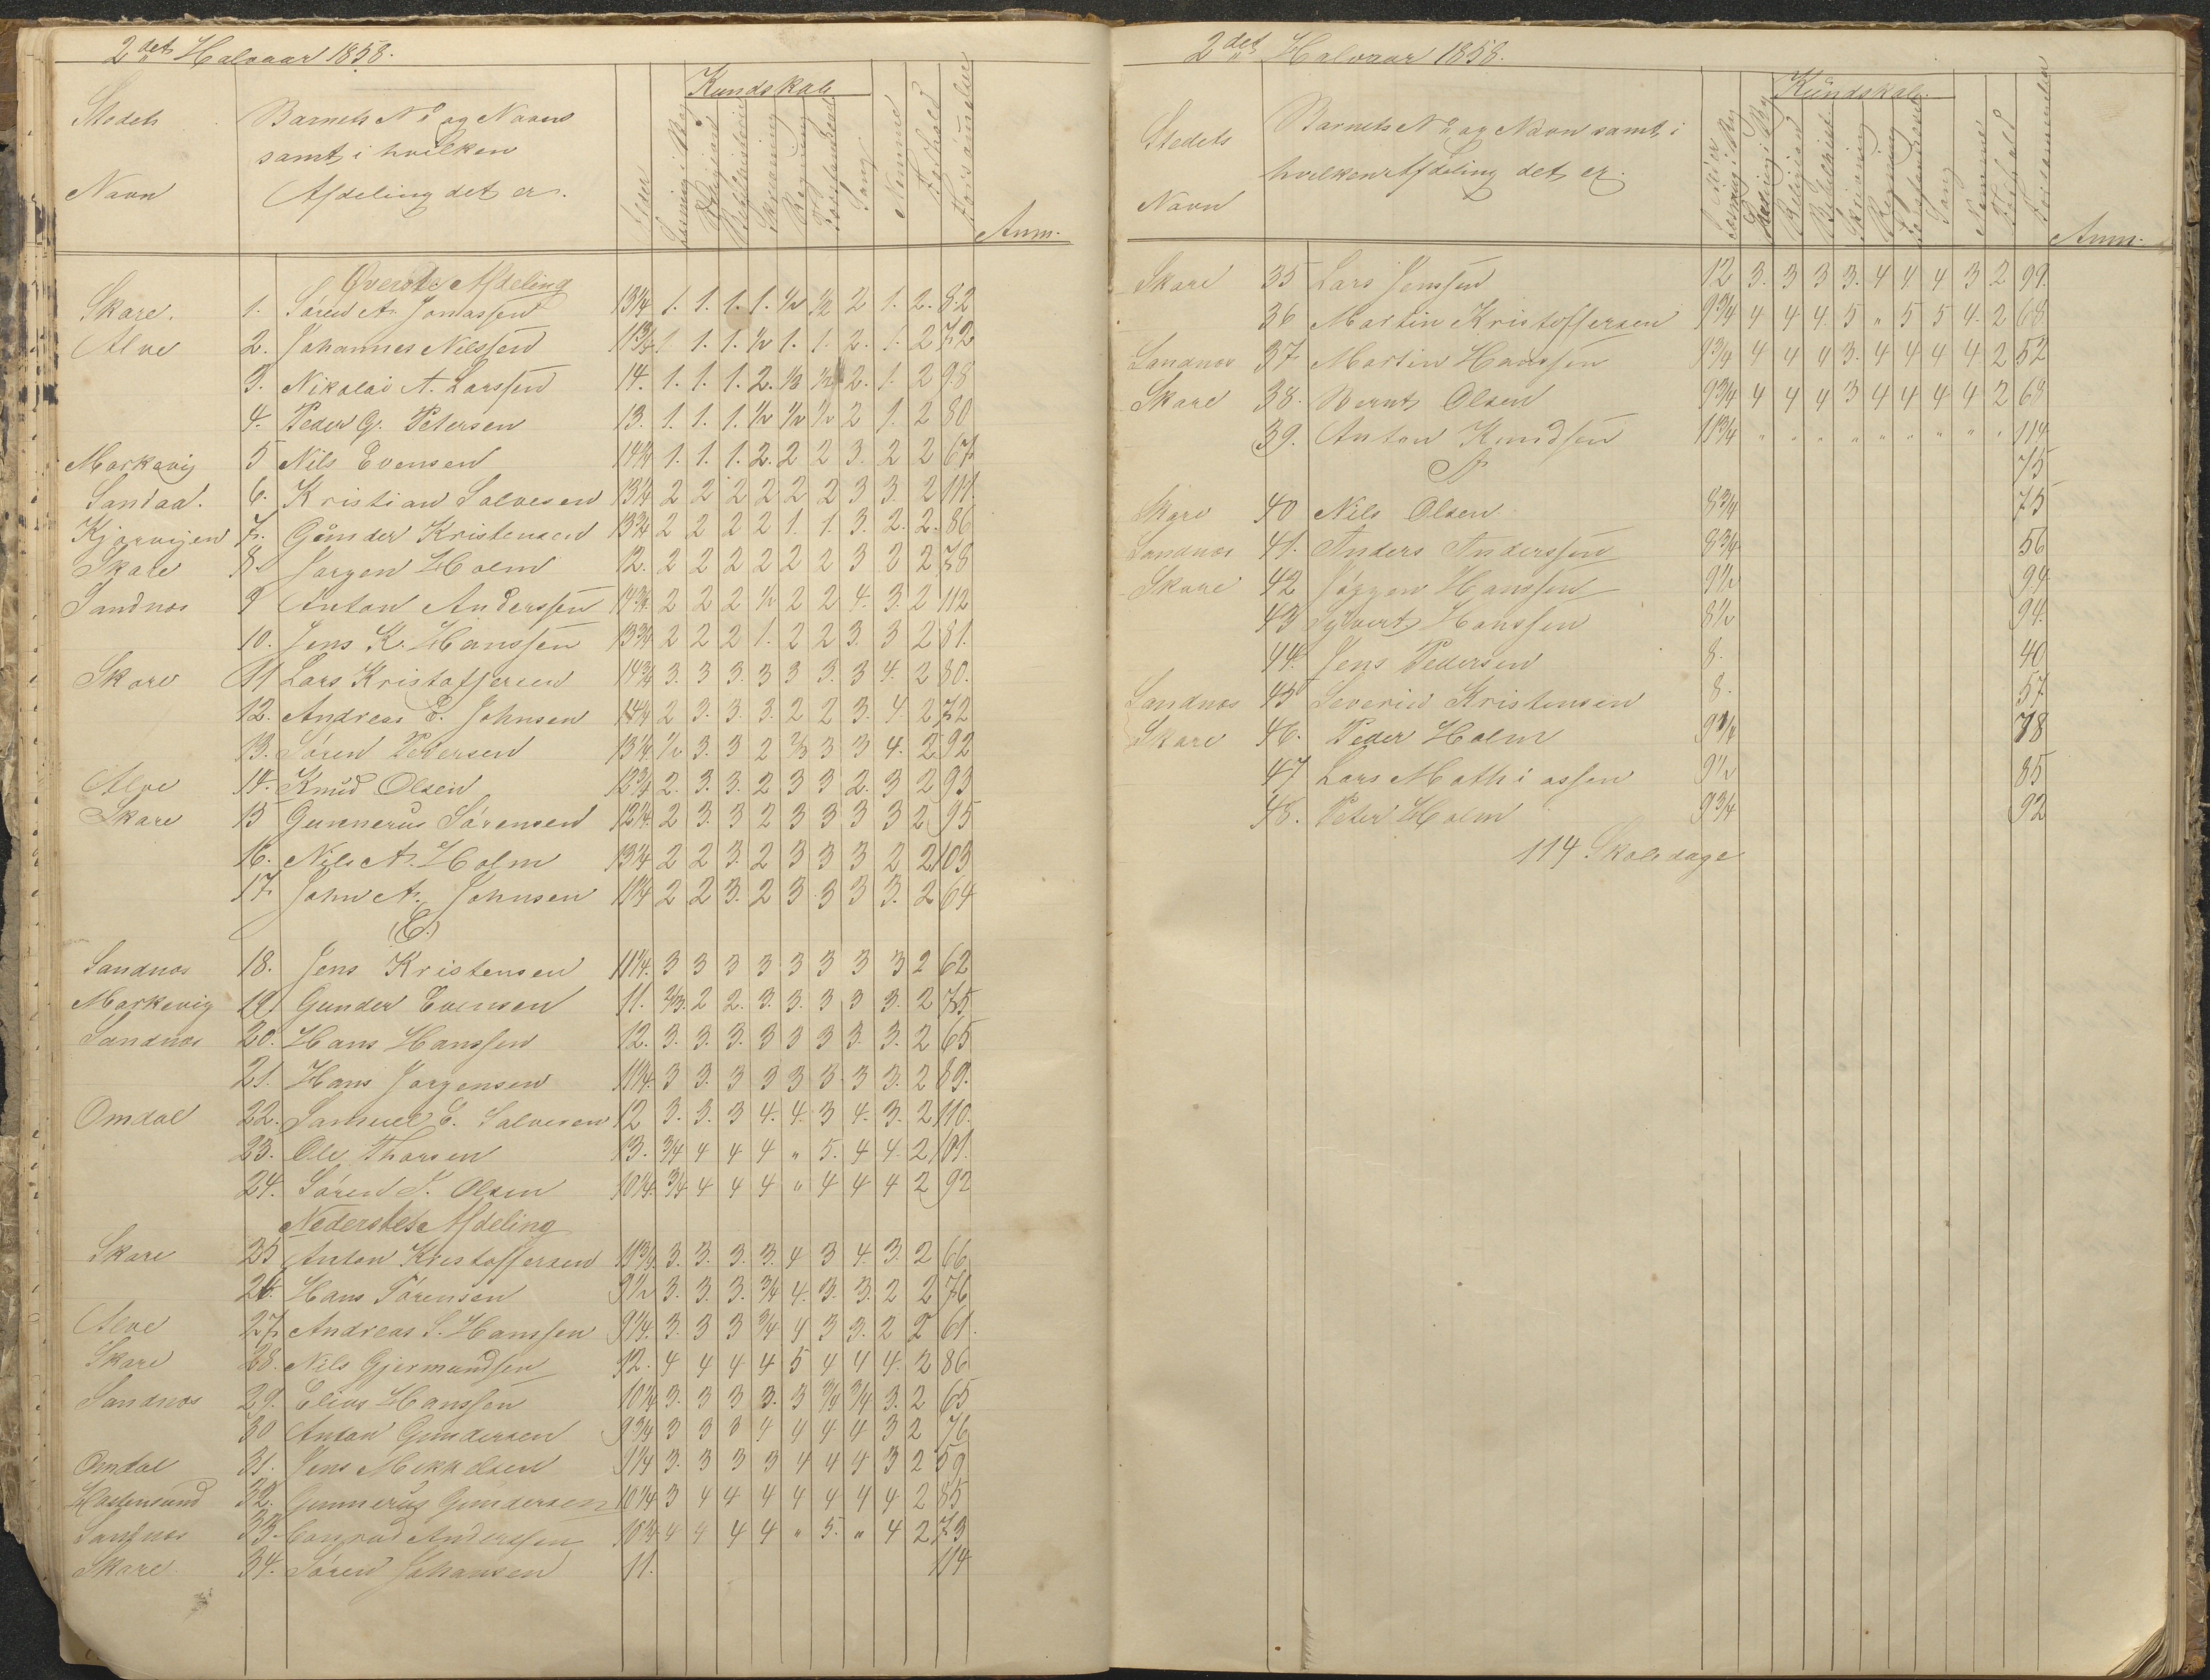 2det Halvaar 1858.
Stedets Navn
Barnets No og Navn samt i hvilken Afdeling det er.
Alder
Kundskab
Læsning i Bog
Religion
Bibelhistorie
Skrivning
Regning
Forstandsøvelse
Sang
Nemme
Forhold
Forsømmelse
Anm.
Øverste Afdeling
Skare. 1. Søren A. Jonassen 13 1/4 1. 1. 1. 1. 1/2 1/2 2 1. 2. 82
Alve 2. Johannes Nilssen 11 3/4 1 1. 1. 1/2 1. 1. 2. 1. 2 72
3. Nikolai A. Larssen 14. 1. 1. 1. 2. 1/2 1/2 2. 1. 2 98
4. Peder G. Petersen 13. 1. 1. 1. 1/2 1/2 1/2 2 1. 2 80
Markevig 5 Nils Evensen 14 1/4 1. 1. 1. 2. 2 2 3. 2 2 67
Sandaa. 6. Kristian Salvesen 13 1/4 2 2 2 2 2 2 3 3. 2 111.
Kjørvigen 7. Gunder Kristensen 13 3/4 2 2 2 2 1. 1. 3. 2. 2. 86
Skare 8. Jørgen Holm 12. 2 2 2 2 2 2 3 2 2 78
Sandnæs 9 Anton Anderssen 14 3/4 2 2 2 1/2 2 2 4. 3. 2 112
10. Jens K. Hanssen 13 3/4 2 2 2 1. 2 2 3. 3 2 81.
Skare 11 Lars Kristoffersen 14 3/4 3. 3 3. 3 3 3. 3 4. 2 80.
12. Andreas E. Johnsen 14 1/4 2 3. 3. 3. 2 2 3. 4. 2 72
13. Søren Pedersen 13 1/4 1/2 3. 3 2 2/3 3 3 4. 2 92
Alve 14. Knud Olsen 12 3/4 2. 3. 3. 2 3 3 2. 3 2 93
Skare 15 Gunnerus Sørensen 12 1/4 2 3. 3 2 3 3 3 3 2 95
16. Nils A. Holm 13 1/4 2 2 3. 2 3 3 3 2 2 103
17. John A. Johnsen 11 1/4 2 2 3. 2 3 3 3 3. 2 64
(E.)
Sandnæs 18. Jens Kristensen 11 1/4. 3 3 3 3 3 3 3 3 2 62
Markevig 19. Gunder Evensen 11. 2/3. 2 2. 3. 3. 3 3 3. 2 75
Sandnæs 20. Hans Hanssen 12. 3. 3. 3. 3 3 3 3. 3. 2 65
21. Hans Jørgensen 11 1/4. 3 3. 3 3 3 3 3 3. 2 89.
Omdal 22. Samuel E. Salvesen 12 3. 3. 3 4. 4. 3 4. 3. 2 110.
23. Ole Thorsen 13. 3/4 4 4 4 " 5. 4 4 2 101.
24. Søren T. Olsen 10 1/4. 3/4 4 4 4 " 4 4 4 2 92
Nederste Afdeling
Skare 25 Anton Kristoffersen 11 3/4. 3. 3. 3. 3. 4 3 4. 3. 2 66
26. Hans Sørensen 9 1/2 3. 3. 3. 3/4 4. 3. 3. 2 2 76
Alve 27. Andreas S. Hanssen 9 1/4. 3. 3 3 3/4 4 3 3. 2 2 61.
Skare 28. Nils Gjermundsen 12. 4 4 4 4 5 4 4 4. 2 86
Sandnæs 29. Elias Hanssen 10 1/4 3. 3 3 3. 3 3/4 3/4 3. 2 65
30 Anton Gundersen 9 3/4 3 3 3 4 4 4 4 3 2 76
Omdal 31. Jens Mikkelsen 11 1/4 3. 3 3 3 4 4 4 3 2 59
Hastensund 32. Gunnerus Gundersen 10 1/4 3 4 4 4 4 4 4 4 2 85
Sandnæs 33. Conrad Anderssen 10 1/4 4 4 4 4 " 5. " 4 2 73
Skare 34. Søren Johansen 11. 114
2det Halvaar 1858.
Stedets Navn
Barnets No og Navn samt i hvilken Afdeling det er.
Alder
Kundskab.
Læsning i Bog
Religion
Bibelhist
Skrivning
Regning
Forstandsøvelse
Sang
Nemme
Forhold
Forsømmelse
Anm.
Skare 35 Lars Jenssen 12 3. 3 3 3. 4 4 4 3 2 99.
36 Martin Kristoffersen 9 3/4 4 4 4. 5 " 5 5 4. 2 68
Sandnæs 37. Martin Hanssen 9 3/4 4 4 4 3. 4 4 4 4 2 52
Skare 38. Bernt Olsen 9 3/4 4 4 4 3 4 4 4 4 2 68
39. Anton Knudsen 11 3/4 " " " " " " " " " 114
75
Skare 40 Nils Olsen 8 3/4 75
Sandnæs 41. Anders Anderssen 8 3/4 56
Skare 42 Jørgen Hanssen 9 1/2 94
43 Syvert Hanssen 8 1/2 94.
44. Jens Pedersen 8. 40
Sandnæs 45 Severin Kristensen 8. 57
Skare 46. Peder Holm 9 3/4 78
47 Lars Mathiassen 9 1/2 85
48. Peter Holm 9 3/4 92
114 Skoledage